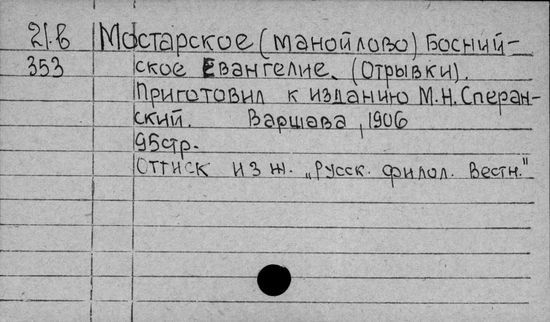 21.в Мостарское (Манойлово) Босний-
353 ское Евангелие. (Отрывки).
Приготовил к изданию М.Н.Сперан-
ский. Варшава, 1906
95стр.
Оттиск из ж. „Русск. филол. Вестн."